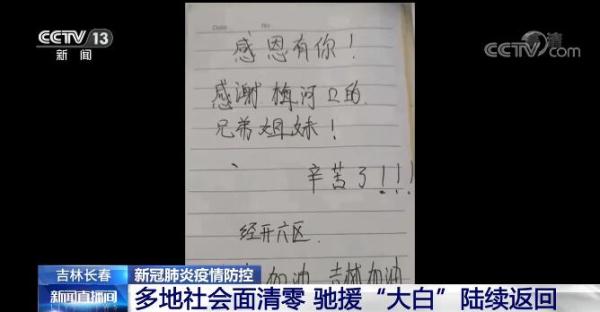 CCTV 13
新闻
CCTV.com
Date
No
感恩有你！
感谢梅河口的
兄弟姐妹！
辛苦了！！！
经开六区.
加油 吉林加油
吉林长春
新冠肺炎疫情防控
新闻直播间
多地社会面清零 驰援“大白”陆续返回